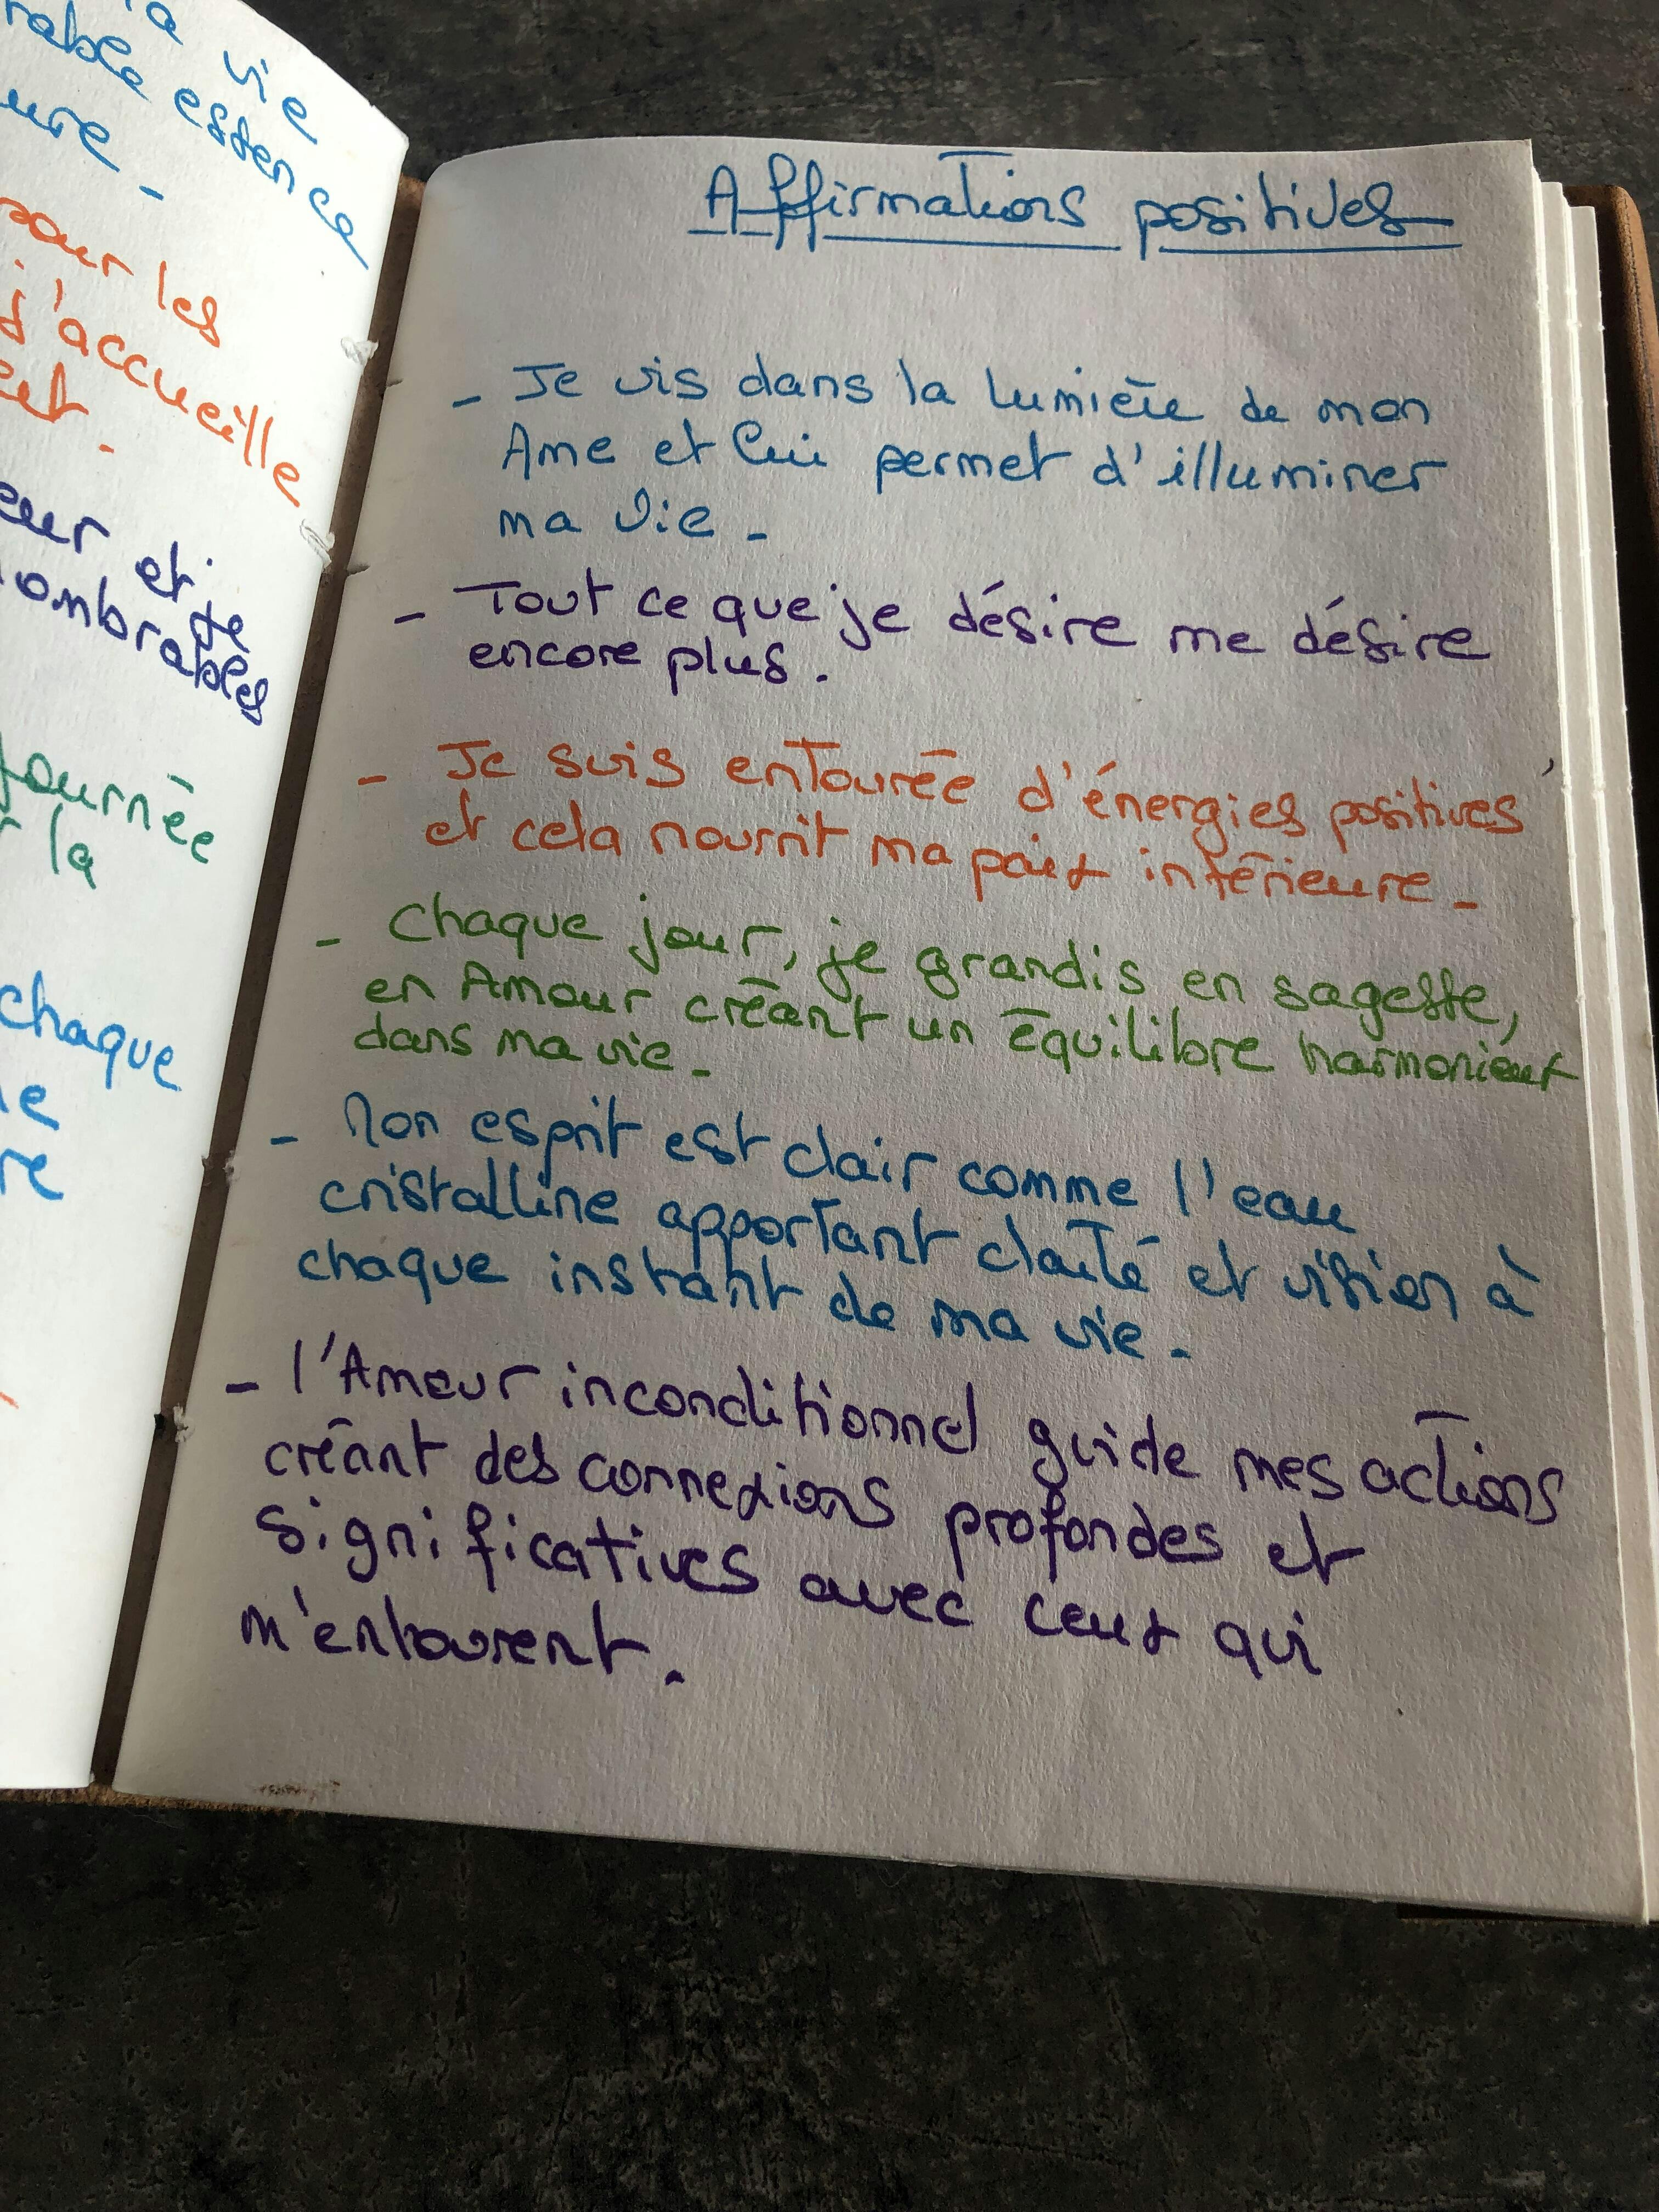 a vie
rable essence
ure -
pour les
j'accueille
et.
eur et je
nombrables
journée
r la
chaque
re
Affirmations positives
- Je vis dans la lumière de mon
Ame et lui permet d'illuminer
ma vie -
- Tout ce que je désire me désire
encore plus.
- Je suis entourée d'énergies positives
et cela nourrit ma paix intérieure -
- Chaque jour, je grandis en sagesse,
en Amour créant un équilibre harmonieux
dans ma vie -
- Mon esprit est clair comme l'eau
cristalline apportant clarté et vision à
chaque instant de ma vie -
- l'Amour inconditionnel guide mes actions
créant des connexions profondes et
significatives avec ceux qui
m'entourent.